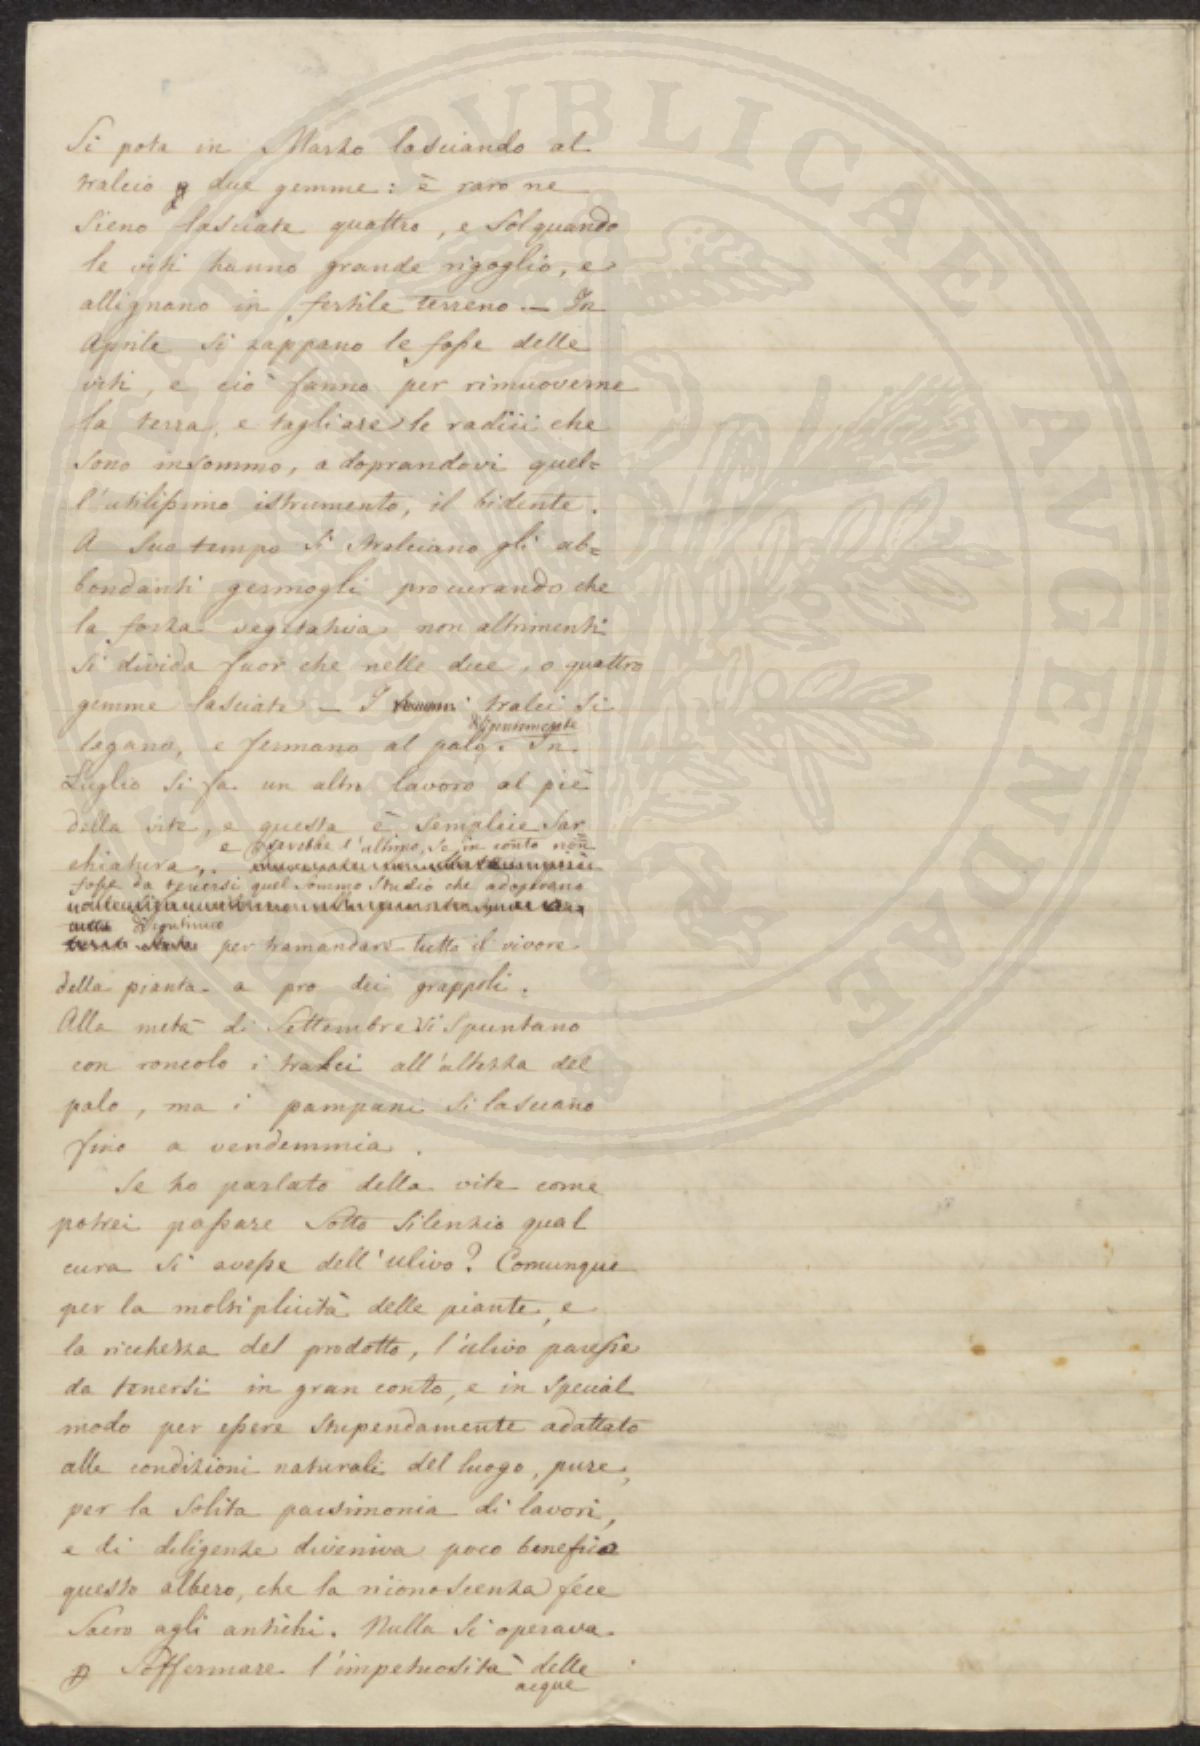 Si pota in Marzo lasciando al
tralcio due gemme: è raro ne
sieno lasciate quattro, e sol quando
le viti hanno grande rigoglio, e
allignano in fertile terreno. — In
Aprile si zappano le fosse delle
viti, e ciò fanno per rimuoverne
la terra, e tagliare le radici che
sono in sommo, adoprandovi quel=
l'utilissimo istrumento, il bidente.
A suo tempo si stralciano gli ab=
bondanti germogli procurando che
la forza vegetativa non altrimenti
si divida fuor che nelle due, o quattro
gemme lasciate — I tralci si
legano, e fermano al palo. In
Luglio si fa un altro lavoro al piè
della vite, e questa è semplice sar
e sarebbe l'ultimo, se in conto non
chiatura,
fosse da tenersi quel sommo studio che adoprano
continuo
per tramandare tutto il vivore
della pianta a pro dei grappoli.
Alla metà di Settembre si spuntano
con roncolo i tralci all'altezza del
palo, ma i pampani si lasciano
fino a vendemmia.
Se ho parlato della vite come
potrei passare sotto silenzio qual
cura si avesse dell'ulivo? Comunque
per la moltiplicità delle piante, e
la ricchezza del prodotto, l'ulivo paresse
da tenersi in gran conto, e in special
modo per essere stupendamente adattato
alle condizioni naturali del luogo, pure,
per la solita parsimonia di lavori,
e di diligenze diveniva poco benefico
questo albero, che la riconoscenza fece
sacro agli antichi. Nulla si operava
p soffermare l'impetuosità delle
acque
PUBLICAE AUGENDAE